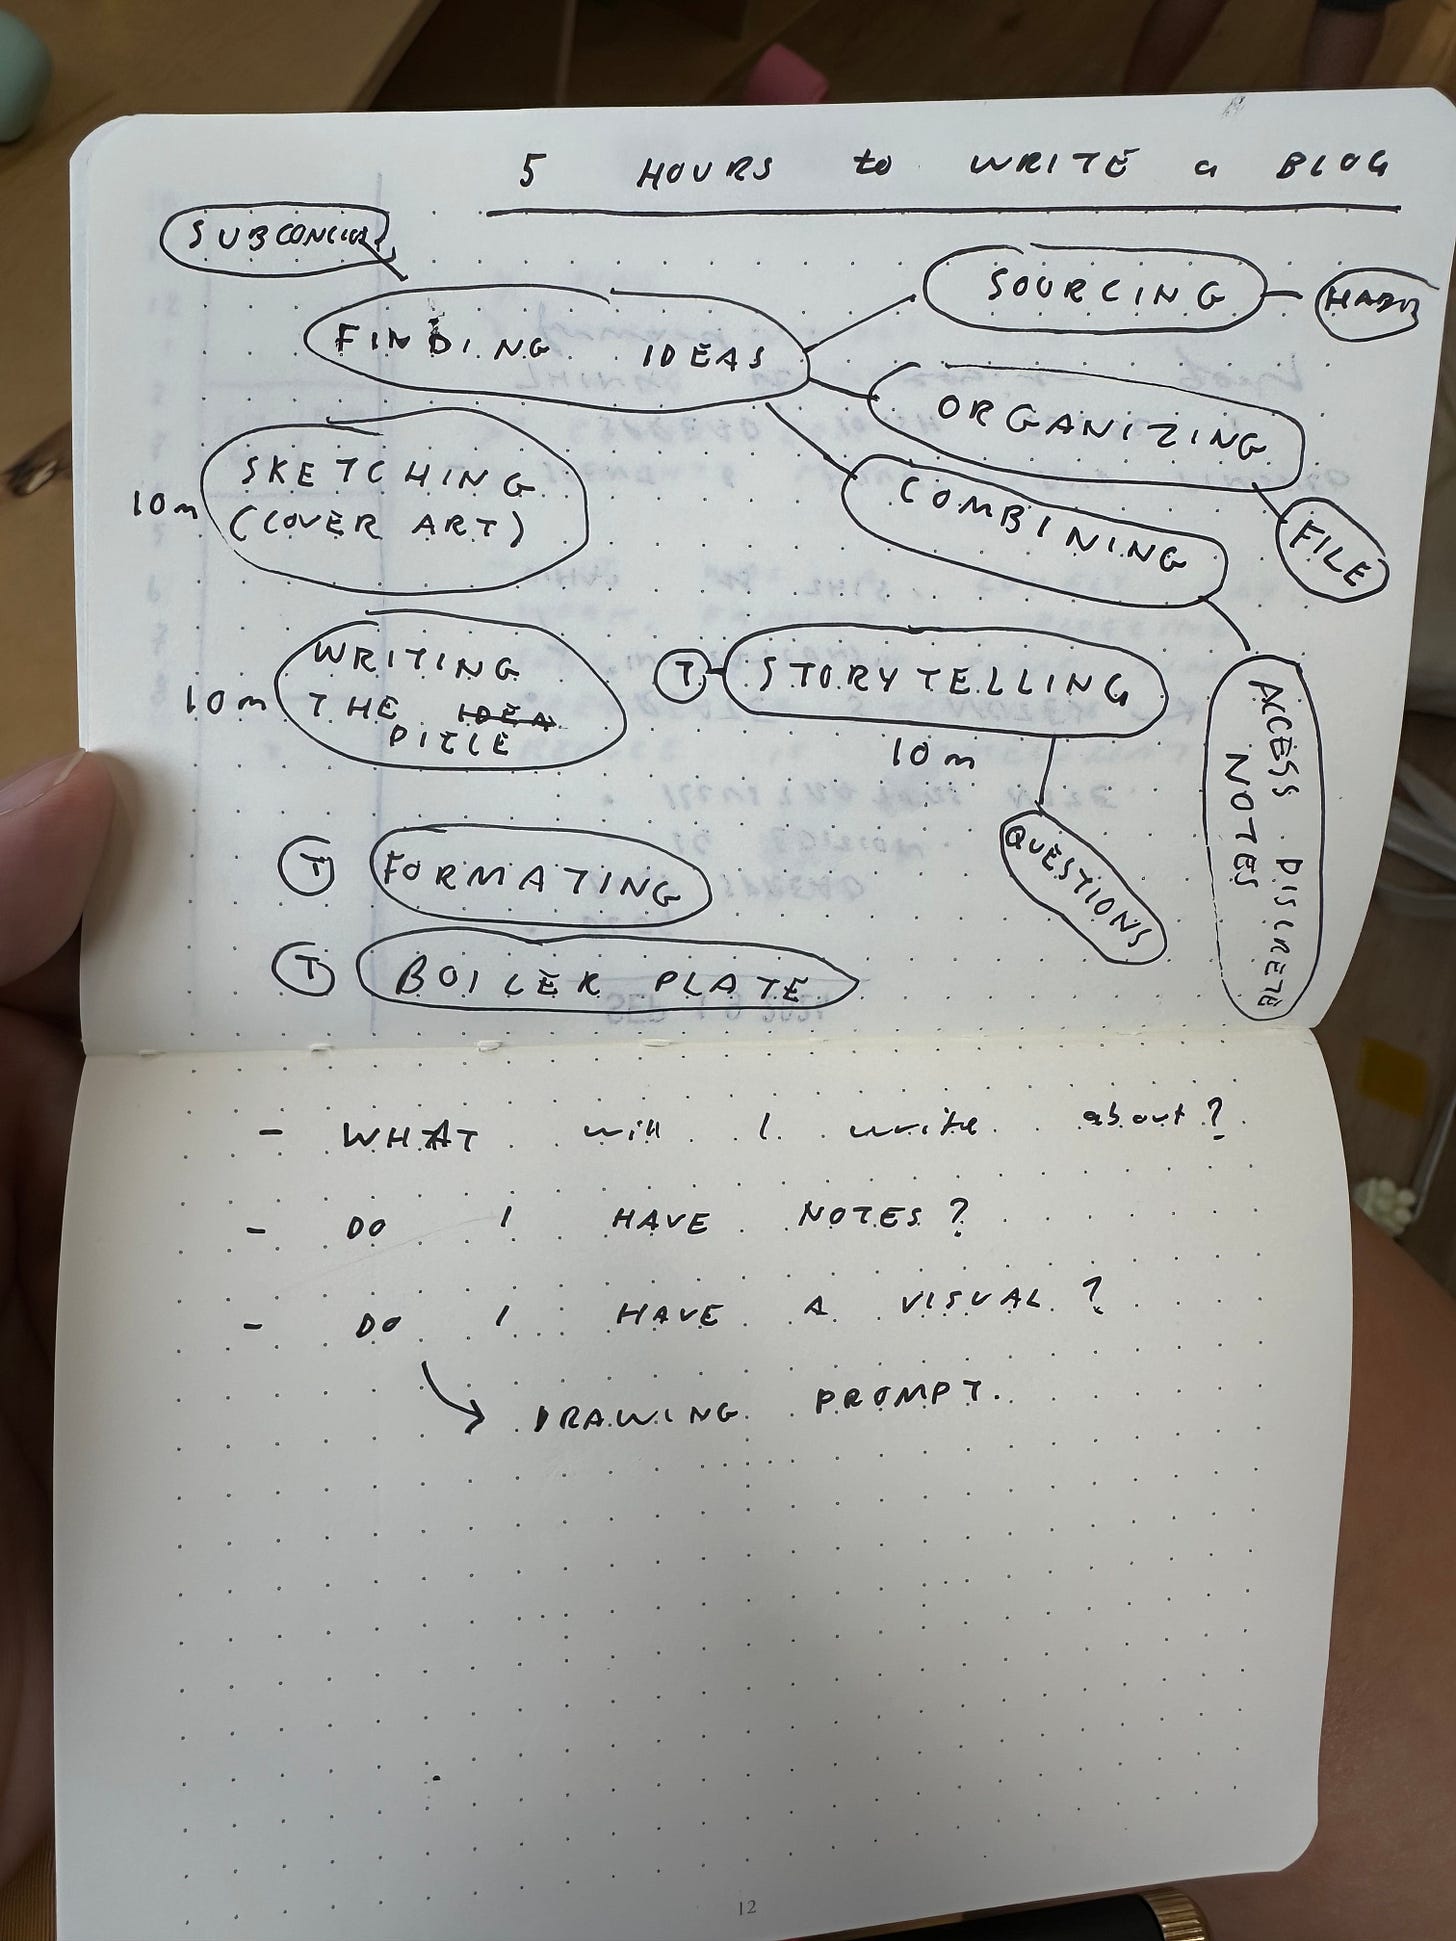 5 HOURS to WRITE a BLOG
FINDING IDEAS
SOURCING
HABIT
ORGANIZING
FILE
COMBINING
ACCESS DISCRETE
NOTES
10m
SKETCHING
(COVER ART)
10m
WRITING
THE IDEA
T
STORYTELLING
10m
QUESTIONS
T
FORMATING
T
BOILER PLATE
- WHAT will I write about?
- DO I HAVE NOTES?
- DO I HAVE A VISUAL?
DRAWING PROMPT.
12